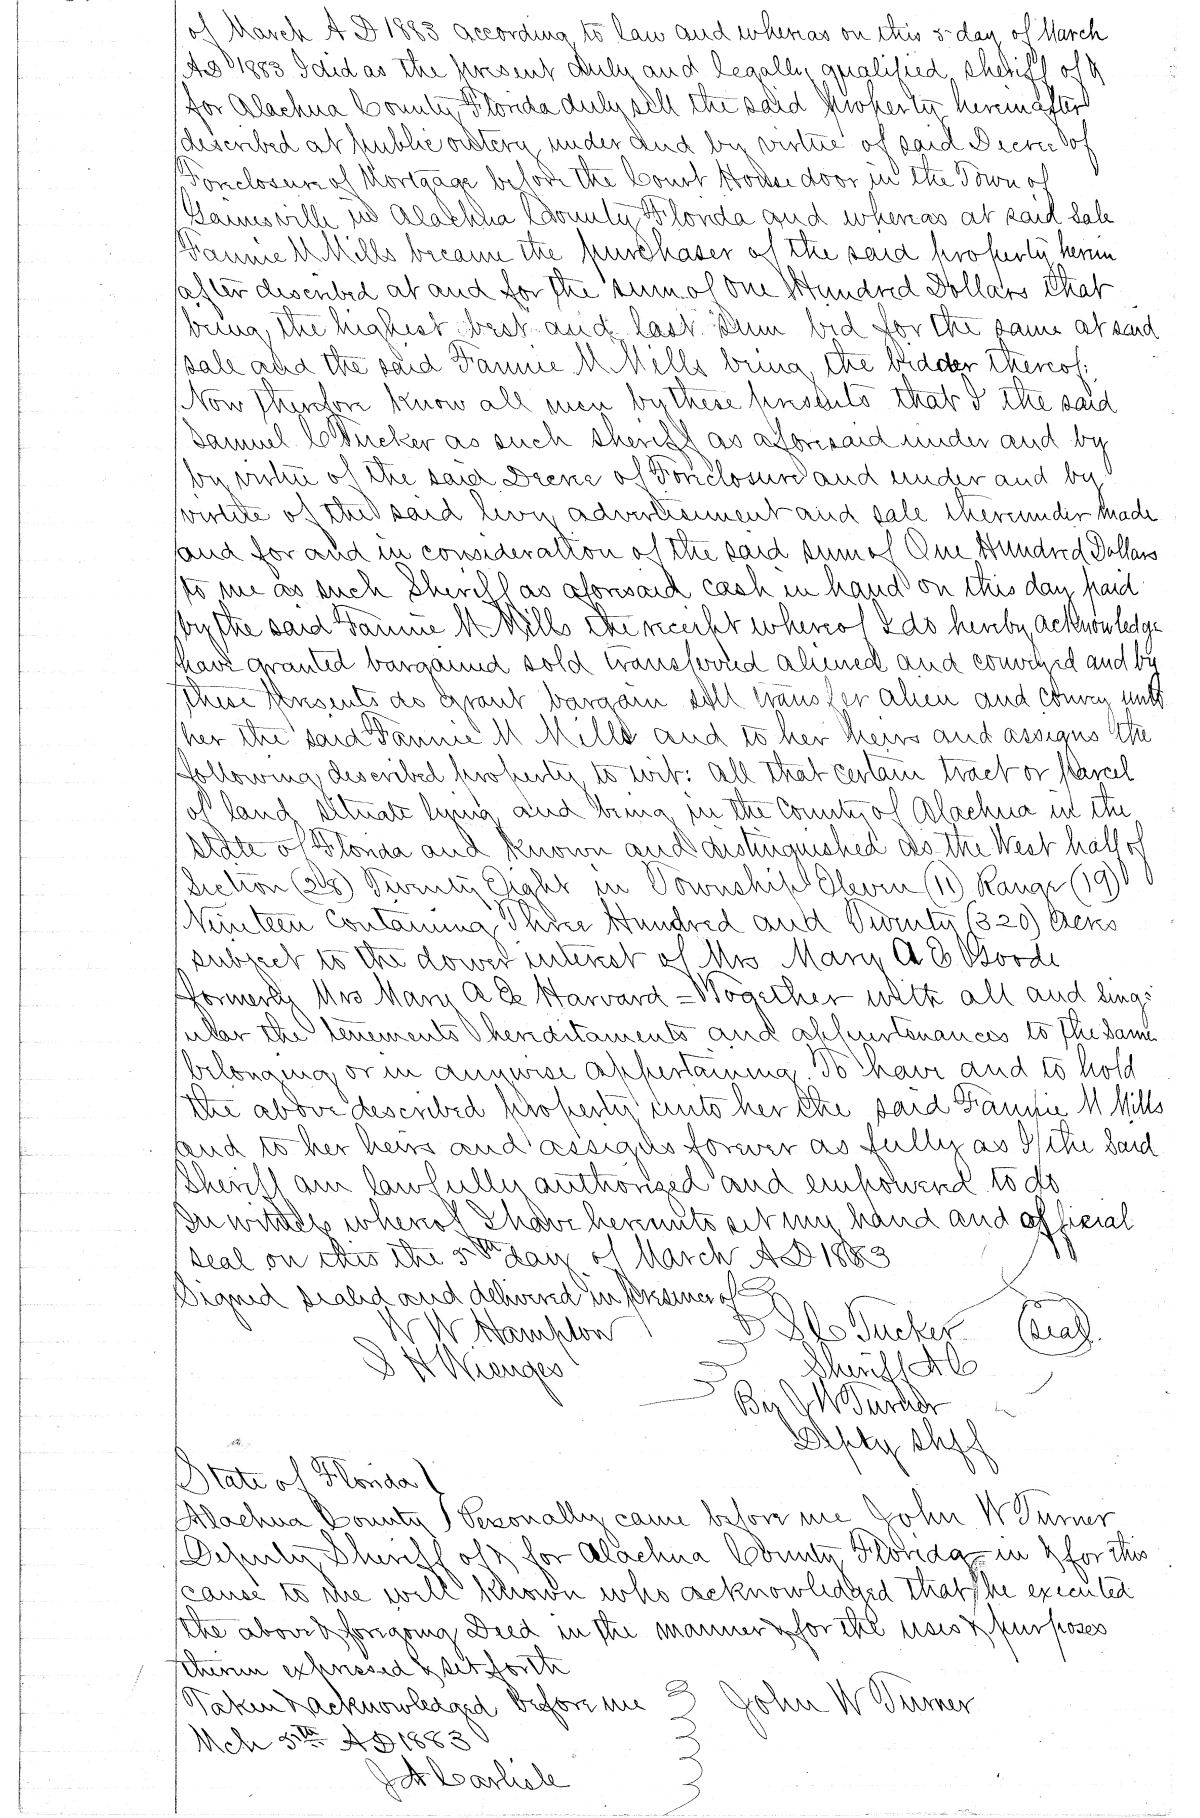 of March A D 1883 according to law and whereas on this 5 day of March
A D 1883 I did as the present duly and legally qualified sheriff of &
for Alachua County Florida duly sell the said property hereinafter
described at public outcry under and by virtue of said Decree of
Foreclosure of Mortgage before the Court House door in the Town of
Gainesville in Alachua County Florida and whereas at said Sale
Fannie M Mills became the purchaser of the said property herein
after described at and for the sum of One Hundred Dollars that
being the highest best and last sum bid for the same at said
sale and the said Fannie M Mills being the bidder thereof;
Now Therefore know all men by these presents that I the said
Samuel C Tucker as such sheriff as aforesaid under and by
by virtue of the said Decree of Foreclosure and under and by
virtue of the said levy advertisement and sale thereunder made
and for and in consideration of the said sum of One Hundred Dollars
to me as such Sheriff as aforesaid cash in hand on this day paid
by the said Fannie M Mills the receipt whereof I do hereby acknowledge
have granted bargained sold transferred aliened and conveyed and by
these presents do grant bargain sell transfer alien and convey unto
her the said Fannie M Mills and to her heirs and assigns the
following described property to wit: all that certain tract or parcel
of land situate lying and being in the County of Alachua in the
State of Florida and known and distinguished as the West half of
Section (28) Twenty Eight in Township Eleven (11) Range (19)
Nineteen Containing Three Hundred and Twenty (320) Acres
subject to the dower interest of Mrs Mary A E Goode
formerly Mrs Mary A E Harvard = Together with all and sing=
ular the tenements hereditaments and appurtenances to the same
belonging or in anywise appertaining. To have and to hold
the above described property unto her the said Fannie M Mills
and to her heirs and assigns forever as fully as I the Said
Sheriff am lawfully authorized and empowered to do
In witness whereof I have hereunto set my hand and official
seal on this the 5th day of March A D 1883
Signed sealed and delivered in presence of
W W Hampton S C Tucker (Seal)
S H Wienges Sheriff A C
By J W Turner
Depty Shff
State of Florida
Alachua County Personally came before me John W Turner
Deputy Sheriff of & for Alachua County Florida in & for this
cause to me well known who acknowledged that he executed
the above & foregoing Deed in the manner & for the uses & purposes
therein expressed & set forth
Taken & acknowledged before me John W Turner
Mch 5th A D 1883
J A Carlisle